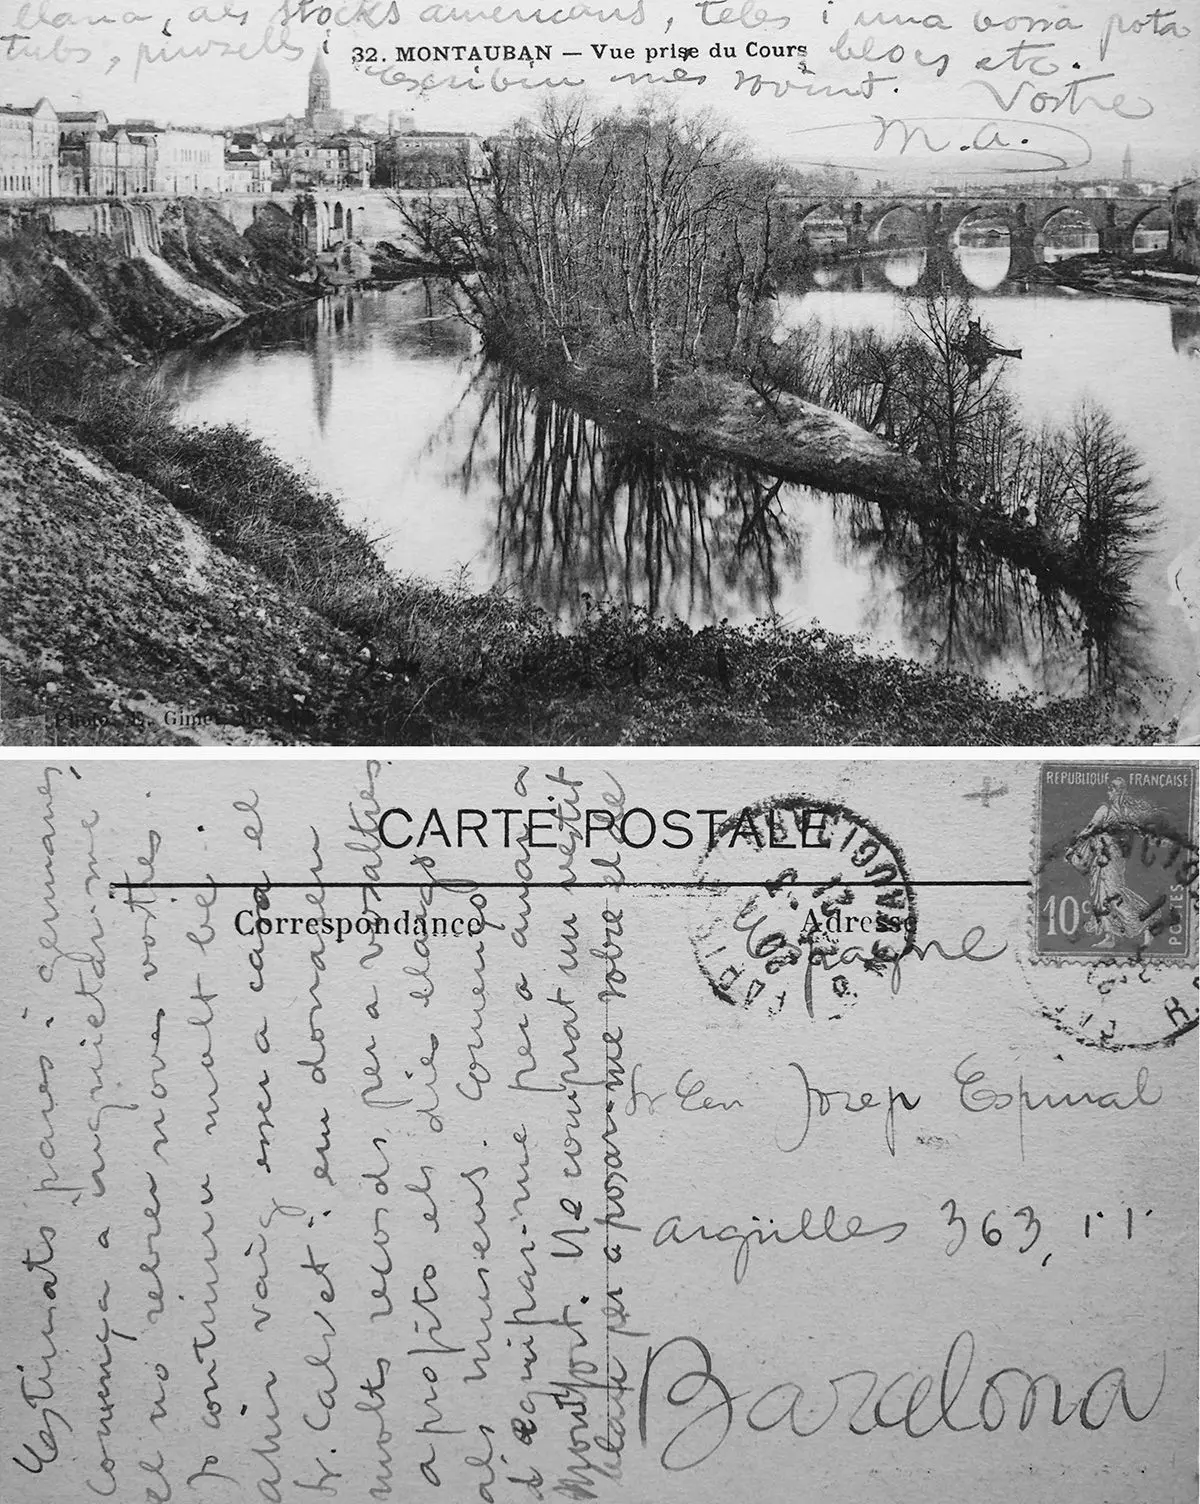 llana, als stocks americans, teles i una bona pota
tubs, pinzells i blocs etc.
32. MONTAUBAN — Vue prise du Cours
Escribiu més sovint. Vostre
M.A.
Photo
CARTE POSTALE
Correspondance
Adresse
REPUBLIQUE FRANÇAISE
10c
POSTES
Espagne
Sr En Josep Espinal
Argüelles 363, 1r 1ª
Barcelona
Estimats pares i germanes,
Comença a inquietar-me
el no rebre noves vostres.
Jo continuu molt bé.
ahir vaig esser a casa el
Sr. Calvet i em donaren
molts records per a vosaltres
aprofito els dies llargs
als museus. Començo
d'equipar-me per a anar a
Montfort. He comprat un vestit
blau per a posar-me sobre el de